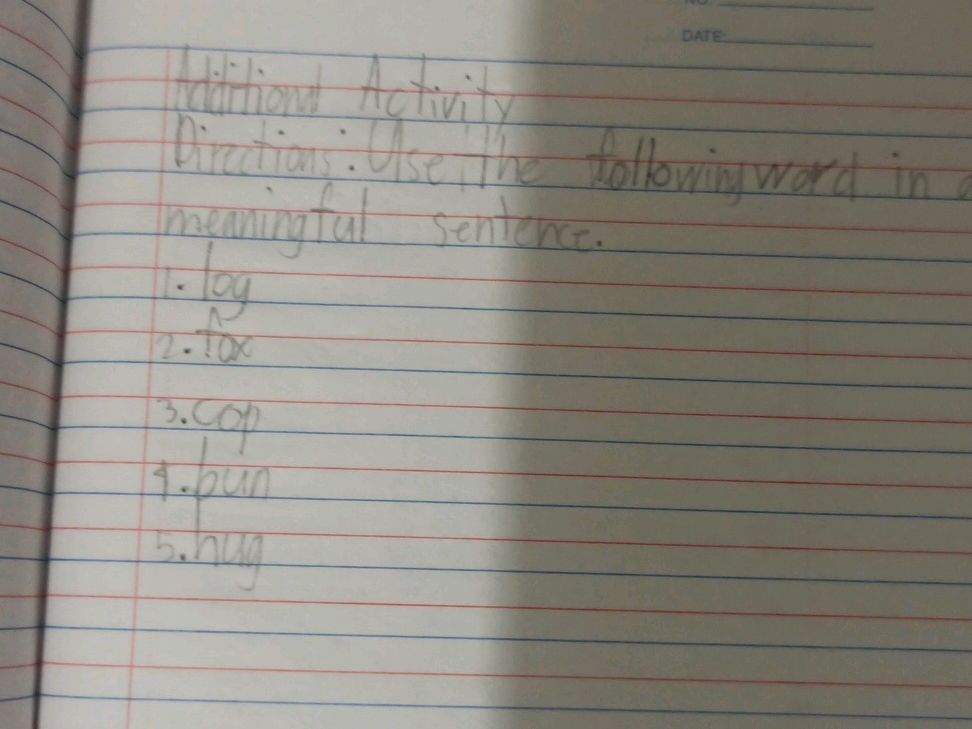 NO.
DATE:
Additional Activity
Directions: Use the following word in a
meaningful sentence.
1. log
2. fox
3. cop
4. bun
5. hug